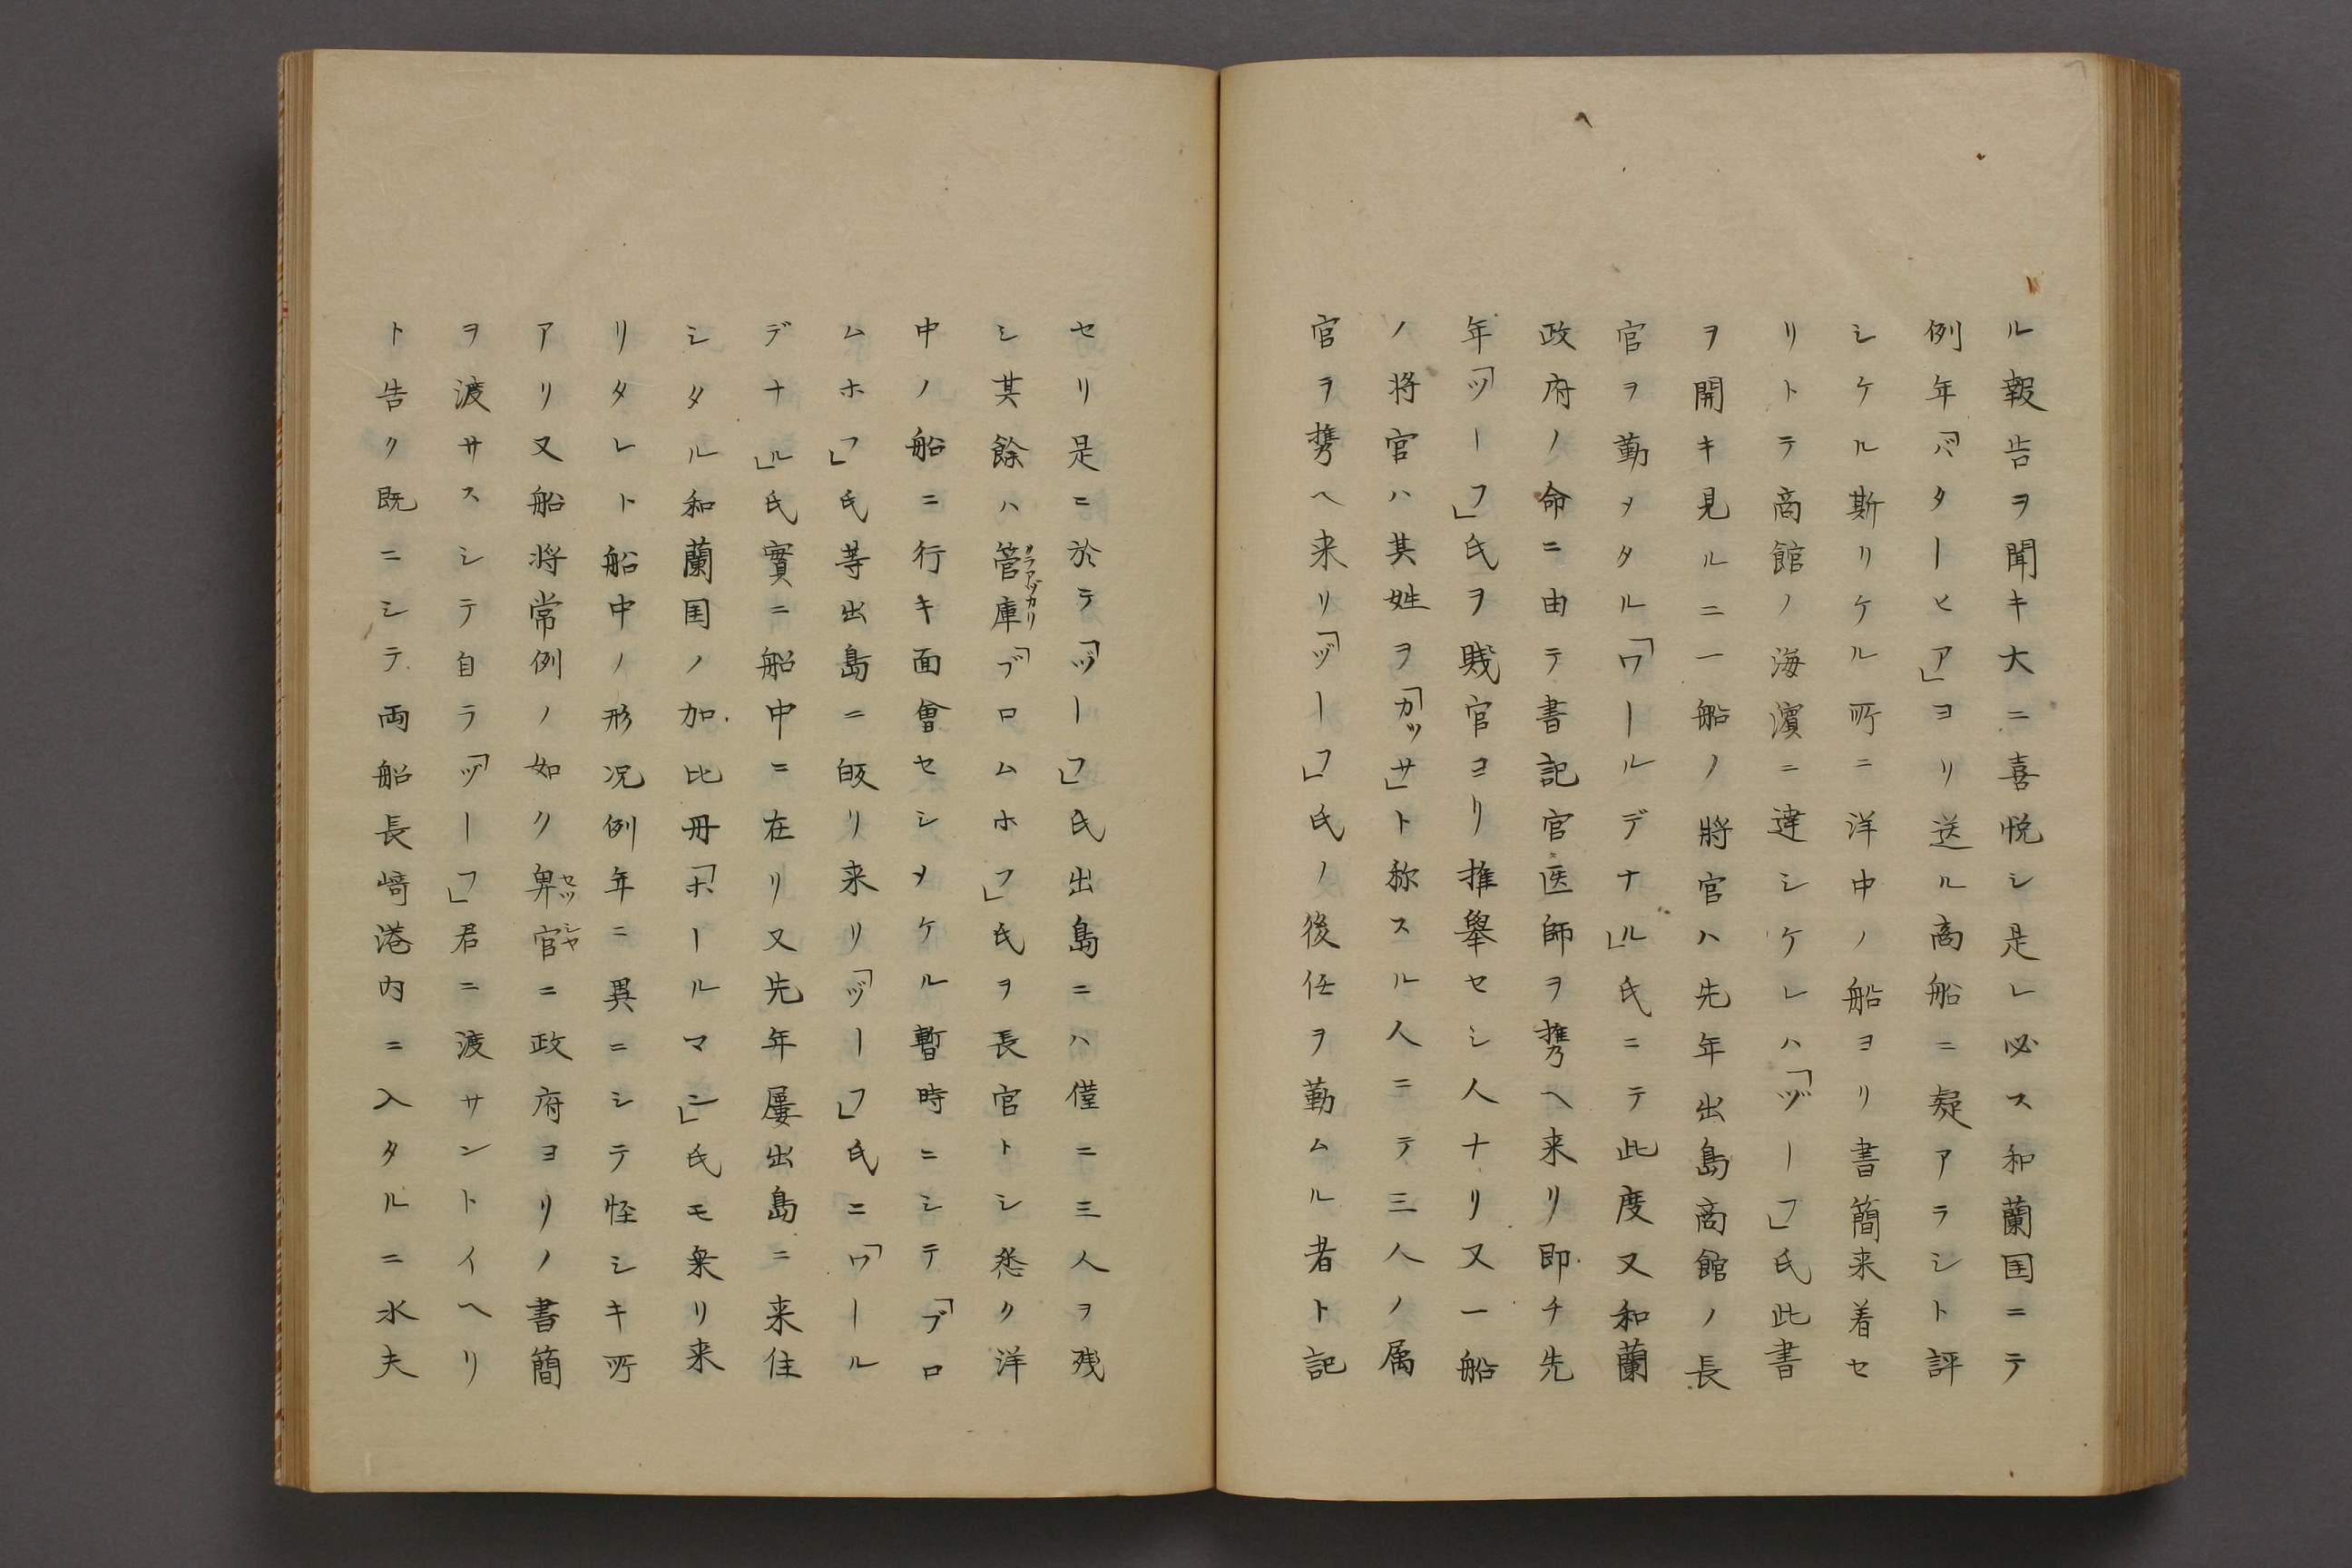 ル報告ヲ聞キ大ニ喜悦シ是レ必ス和蘭国ニテ
例年「バターヒア」ヨリ送ル商船ニ疑アラシト評
シケル斯リケル所ニ洋中ノ船ヨリ書簡来着セ
リトテ商館ノ海濵ニ達シケレハ「ヅーフ」氏此書
ヲ開キ見ルニ一船ノ將官ハ先年出島商館ノ長
官ヲ勤メタル「ワールデナル」氏ニテ此度又和蘭
政府ノ命ニ由テ書記官医師ヲ携ヘ来リ即チ先
年「ヅーフ」氏ヲ賤官ヨリ推舉セシ人ナリ又一船
ノ将官ハ其姓ヲ「カッサ」ト称スル人ニテ三人ノ属
官ヲ携ヘ来リ「ヅーフ」氏ノ後任ヲ勤ムル者ト記
セリ是ニ於テ「ヅーフ」氏出島ニハ僅ニ三人ヲ残
シ其餘ハ管庫クラアヅカリ「ブロムホフ」氏ヲ長官トシ悉ク洋
中ノ船ニ行キ面會セシメケル暫時ニシテ「ブロ
ムホフ」氏等出島ニ皈リ来リ「ヅーフ」氏ニ「ワール
デナル」氏實ニ船中ニ在リ又先年屢出島ニ来住
シタル和蘭国ノ加比丹「ホールマン」氏モ乗リ来
リタレト船中ノ形况例年ニ異ニシテ怪シキ所
アリ又船将常例ノ如ク卑官セッシヤニ政府ヨリノ書簡
ヲ渡サスシテ自ラ「ヅーフ」君ニ渡サントイヘリ
ト告ク既ニシテ両船長﨑港内ニ入タルニ水夫